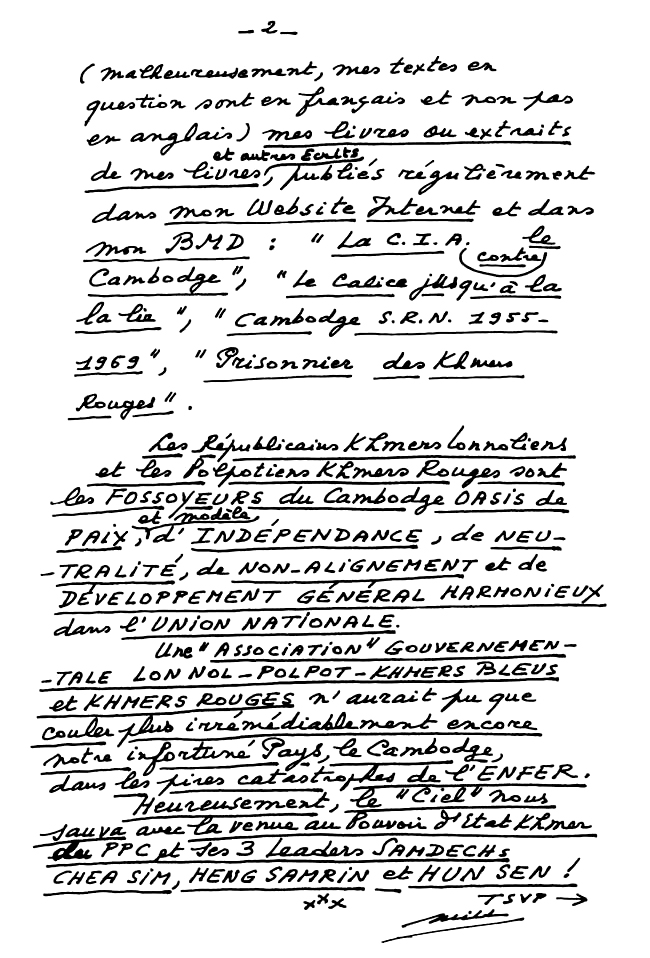 - 2 -
(malheureusement, mes textes en
question sont en français et non pas
en anglais) mes livres ou extraits
et autres Ecrits,
de mes livres, publiés régulièrement
dans mon Website Internet et dans
mon BMD : " La C.I.A. le
contre
Cambodge", "Le Calice jusqu'à la
la lie", "Cambodge S.R.N. 1955-
1969", "Prisonnier des Khmers
Rouges".
Les Républicains Khmers lonnoliens
et les Polpotiens Khmers Rouges sont
les FOSSOYEURS du Cambodge OASIS de
et modèle
PAIX, d'INDÉPENDANCE, de NEU-
-TRALITÉ, de NON-ALIGNEMENT et de
DÉVELOPPEMENT GÉNÉRAL HARMONIEUX
dans l'UNION NATIONALE.
Une "ASSOCIATION" GOUVERNEMEN-
-TALE LON NOL-POLPOT-KHMERS BLEUS
et KHMERS ROUGES n'aurait pu que
couler plus irrémédiablement encore
notre infortuné Pays, le Cambodge,
dans les pires catastrophes de l'ENFER.
Heureusement, le "Ciel" nous
sauva avec la venue au Pouvoir d'Etat Khmer
du PPC et ses 3 Leaders SAMDECHs
CHEA SIM, HENG SAMRIN et HUN SEN !
xxx
TSVP →